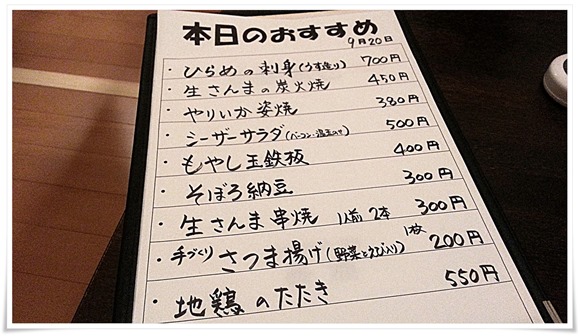 本日のおすすめ
9月20日
・ひらめの刺身(うす造り) 700円
・生さんまの炭火焼 450円
・やりいか姿焼 380円
・シーザーサラダ(ベーコン・温玉のせ) 500円
・もやし玉鉄板 400円
・そぼろ納豆 300円
・生さんま串焼 1人前 2本 300円
・手づくりさつま揚げ(野菜とえび入り) 1枚 200円
・地鶏のたたき 550円